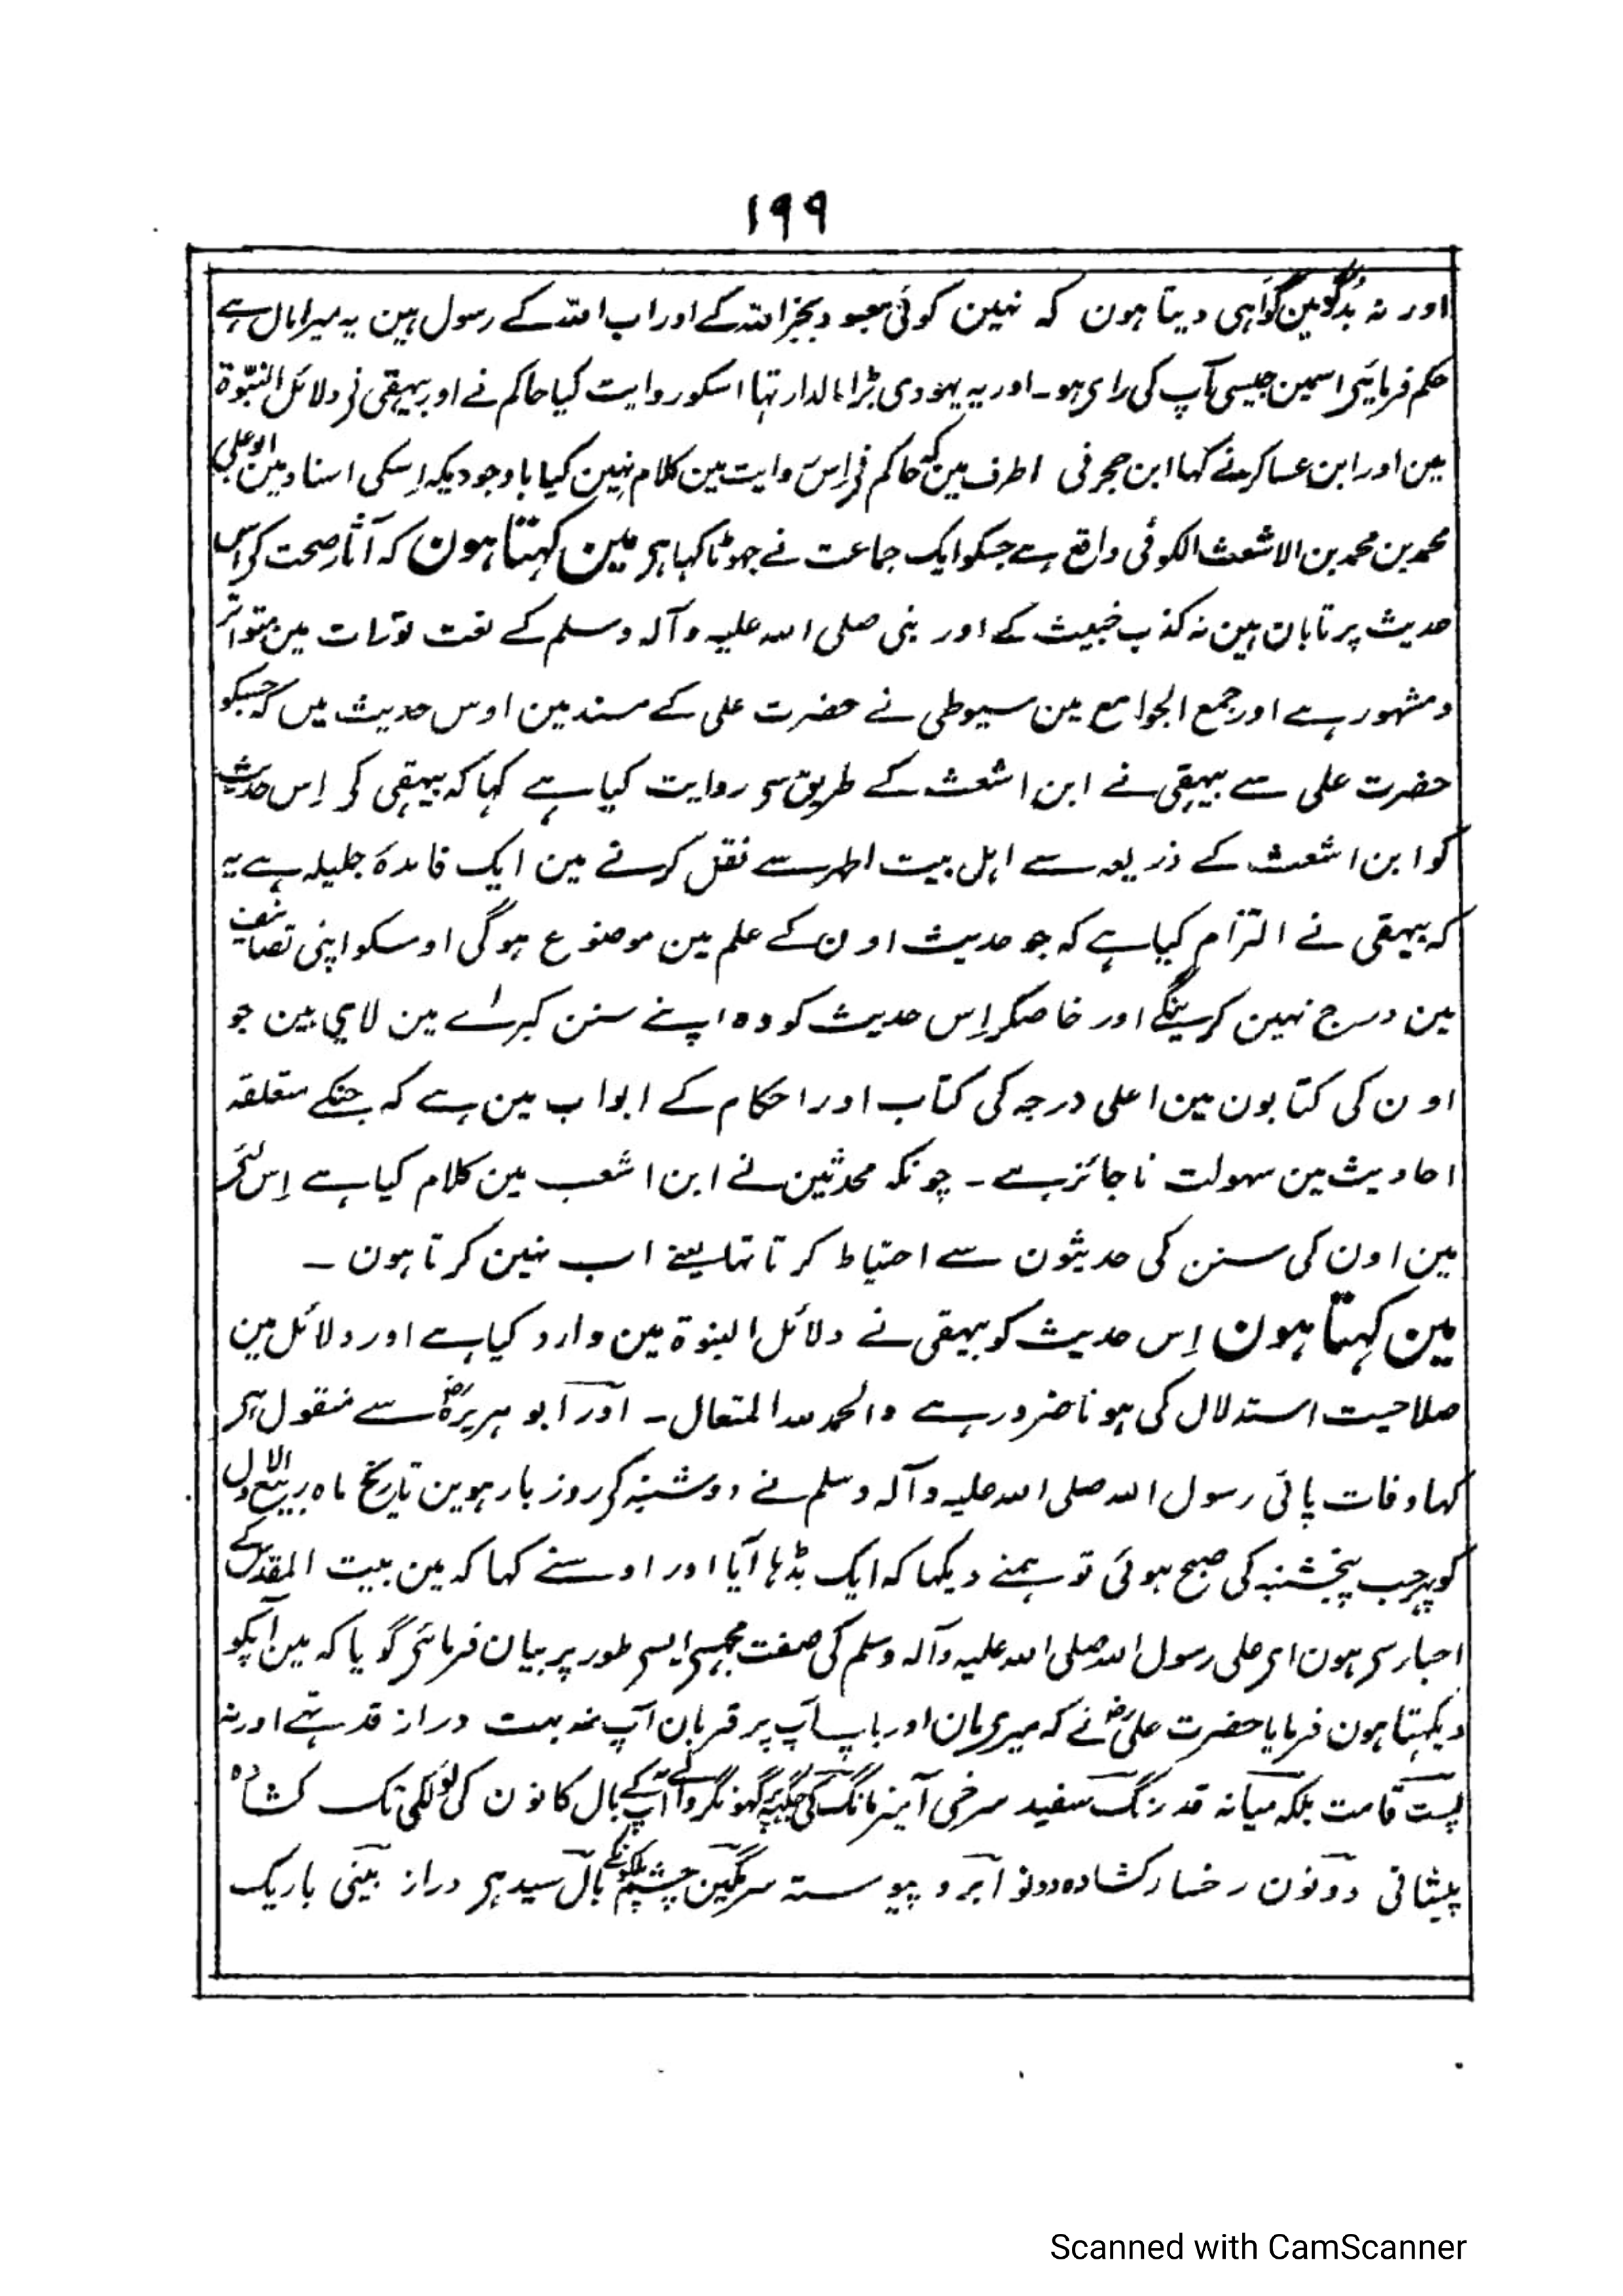 ۱۹۹
اور نہ بدگو مین گواہی دیتا ہون کہ نہین کوئی معبود بجز اللہ کے اور اب اللہ کے رسول ہین یہ میرا مال ہے
حکم فرمائیی اسمین جیسی آپ کی رای ہو۔ اور یہ یہودی بڑا مالدار تہا اسکو روایت کیا حاکم نے اور بیہقی نی دلائل النبّوۃ
مین اور ابن عساکر نے کہا ابن حجر نی اطرف مین کہ حاکم نی اِس روایت مین کلام نہین کیا باوجودیکہ اِسکی اسناد مین ابو علی
محمد بن محمد بن الاشعث الکوفی واقع ہے جسکو ایک جماعت نے جہوٹا کہا ہی مین کہتا ہون کہ آثار صحت کی اس
حدیث پر تابان ہین نہ کذب خبیث کے اور نبی صلی اللہ علیہ وآلہ وسلم کے نعت تورات مین متواتر
ومشہور ہے اور جمع الجوامع مین سیوطی نے حضرت علی کے مسند مین اوس حدیث میں کہ جسکو
حضرت علی سے بیہقی نے ابن اشعث کے طریق سی روایت کیا ہے کہا کہ بیہقی کی اِس حدیث
کو ابن اشعث کے ذریعہ سے اہل بیت اطہر سے نقل کرنے مین ایک فائدۂ جلیلہ ہے یہ
کہ بیہقی نے التزام کیا ہے کہ جو حدیث اون کے علم مین موضوع ہوگی اوسکو اپنی تصانیف
مین درج نہین کرینگے اور خاصکر اِس حدیث کو وہ اپنے سنن کبراے مین لایی ہین جو
اون کی کتابون مین اعلی درجہ کی کتاب اور احکام کے ابواب مین ہے کہ جنکے متعلقہ
احادیث مین سہولت ناجائز ہے ۔ چونکہ محدثین نے ابن اشعب مین کلام کیا ہے اِس لئی
مین اون کی سنن کی حدیثون سے احتیاط کرتا تہا یعنے اب نہین کرتا ہون ۔
مین کہتا ہون اِس حدیث کو بیہقی نے دلائل النبوۃ مین وارد کیا ہے اور دلائل مین
صلاحیت استدلال کی ہونا ضرور ہے والحمد للہ المتعال ۔ اور ابو ہریرہؓ سے منقول ہی
کہا وفات پائی رسول اللہ صلی اللہ علیہ وآلہ وسلم نے دوشنبہ کی روز بارہوین تاریخ ماہ ربیع الاول
کو پہر جب پنجشنبہ کی صبح ہوئی تو ہمنے دیکہا کہ ایک بڈہا آیا اور اوسنے کہا کہ مین بیت المقدس کے
احبار سی ہون ای علی رسول اللہ صلی اللہ علیہ وآلہ وسلم کی صفت مجہسی ایسی طور پر بیان فرمائی گویا کہ مین آپکو
دیکہتا ہون فرمایا حضرت علیؓ نے کہ میری مان اور باپ آپ پر قربان آپ نہ بہت دراز قد تہے اور نہ
پست قامت بلکہ میانہ قد رنگ سفید سرخی آمیز مانگ کی جگہ پر گہونگر والے آپ کے بال کانون کی لولکی تک کشادہ
پیشانی دونون رخسار کشادہ دونو ابرو پیوستہ سرمگین چشم پلکونکے بال سیدہی دراز بینی باریک
Scanned with CamScanner